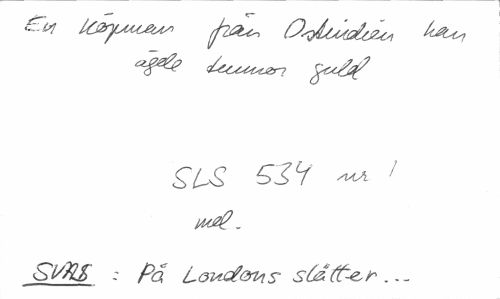 En köpman från Ostindien han
ägde tunnor guld
SLS 534 nr 1
mel.
SVAB : På Londons slätter...